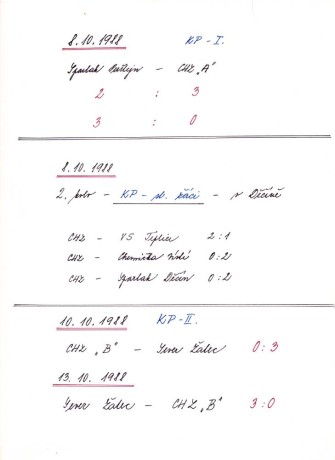 8.10.1988 KP-I.
Spartak - CHZ „A"
2 : 3
3 : 0
8.10.1988
2. kolo - KP - st. žáci - v Děčíně
CHZ - VS Teplice 2:1
CHZ - Chemička Ústí 0:2
CHZ - Spartak Děčín 0:2
10.10.1988 KP-II.
CHZ „B" - Sever Žatec 0:3
13.10.1988
Sever Žatec - CHZ „B" 3:0